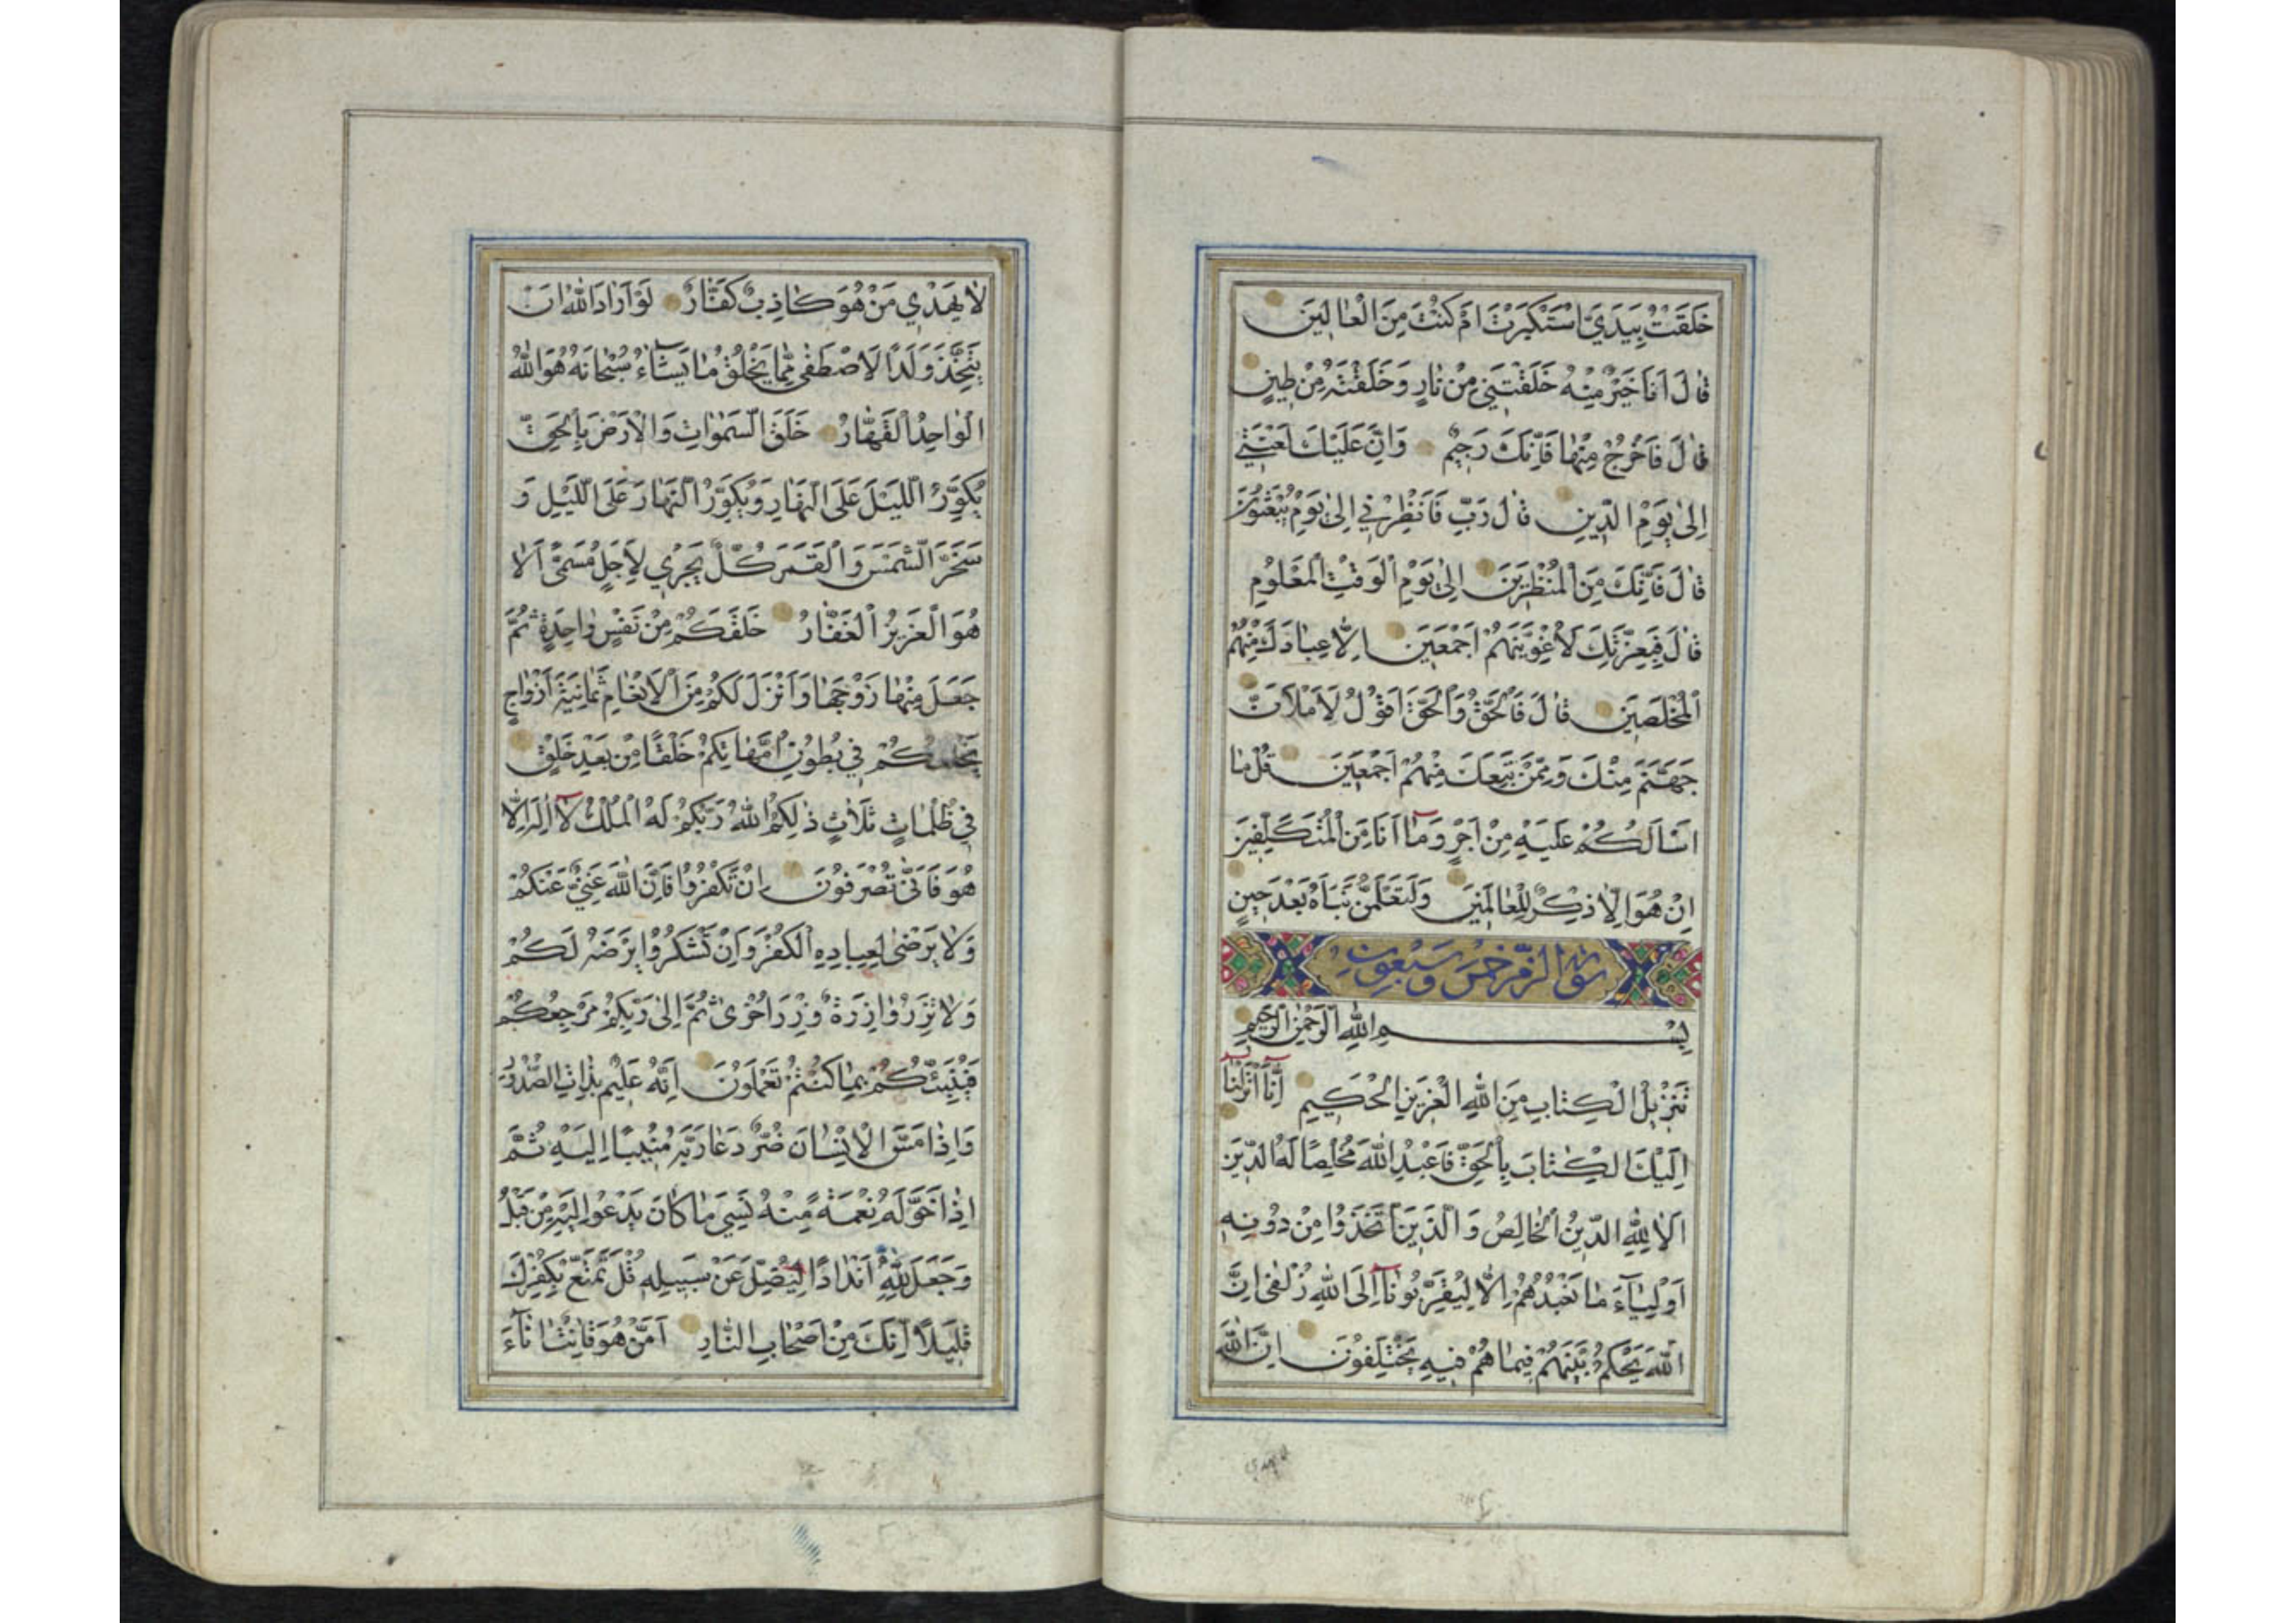 خَلَقْتُ بِيَدَيَّ اسْتَكْبَرْتَ اَمْ كُنْتَ مِنَ الْعٰالِينَ
قٰالَ اَنَا خَيْرٌ مِنْهُ خَلَقْتَنِي مِنْ نٰارٍ وَخَلَقْتَهُ مِنْ طِينٍ
قٰالَ فَاخْرُجْ مِنْهٰا فَاِنَّكَ رَجِيمٌ وَاِنَّ عَلَيْكَ لَعْنَتِي
اِلىٰ يَوْمِ الدِّينِ قٰالَ رَبِّ فَاَنْظِرْنِي اِلىٰ يَوْمِ يُبْعَثُونَ
قٰالَ فَاِنَّكَ مِنَ الْمُنْظَرِينَ اِلىٰ يَوْمِ الْوَقْتِ الْمَعْلُومِ
قٰالَ فَبِعِزَّتِكَ لَاُغْوِيَنَّهُمْ اَجْمَعِينَ اِلّٰا عِبٰادَكَ مِنْهُمُ
الْمُخْلَصِينَ قٰالَ فَالْحَقُّ وَالْحَقَّ اَقُولُ لَاَمْلَاَنَّ
جَهَنَّمَ مِنْكَ وَمِمَّنْ تَبِعَكَ مِنْهُمْ اَجْمَعِينَ قُلْ مٰا
اَسْاَلُكُمْ عَلَيْهِ مِنْ اَجْرٍ وَمٰا اَنَا مِنَ الْمُتَكَلِّفِينَ
اِنْ هُوَ اِلّٰا ذِكْرٌ لِلْعٰالَمِينَ وَلَتَعْلَمُنَّ نَبَاَهُ بَعْدَ حِينٍ
سورة الزمر خمس وسبعون
بِسْمِ اللهِ الرَّحْمٰنِ الرَّحِيمِ
تَنْزِيلُ الْكِتٰابِ مِنَ اللهِ الْعَزِيزِ الْحَكِيمِ اِنّٰا اَنْزَلْنٰا
اِلَيْكَ الْكِتٰابَ بِالْحَقِّ فَاعْبُدِ اللهَ مُخْلِصًا لَهُ الدِّينَ
اَلٰا لِلّٰهِ الدِّينُ الْخٰالِصُ وَالَّذِينَ اتَّخَذُوا مِنْ دُونِهِ
اَوْلِيٰآءَ مٰا نَعْبُدُهُمْ اِلّٰا لِيُقَرِّبُونٰا اِلَى اللهِ زُلْفىٰ اِنَّ
اللهَ يَحْكُمُ بَيْنَهُمْ فِيمٰا هُمْ فِيهِ يَخْتَلِفُونَ اِنَّ اللهَ
لٰا يَهْدِي مَنْ هُوَ كٰاذِبٌ كَفّٰارٌ لَوْ اَرٰادَ اللهُ اَنْ
يَتَّخِذَ وَلَدًا لَاصْطَفىٰ مِمّٰا يَخْلُقُ مٰا يَشٰآءُ سُبْحٰانَهُ هُوَ اللهُ
الْوٰاحِدُ الْقَهّٰارُ خَلَقَ السَّمٰوٰاتِ وَالْاَرْضَ بِالْحَقِّ
يُكَوِّرُ اللَّيْلَ عَلَى النَّهٰارِ وَيُكَوِّرُ النَّهٰارَ عَلَى اللَّيْلِ وَ
سَخَّرَ الشَّمْسَ وَالْقَمَرَ كُلٌّ يَجْرِي لِاَجَلٍ مُسَمًّى اَلٰا
هُوَ الْعَزِيزُ الْغَفّٰارُ خَلَقَكُمْ مِنْ نَفْسٍ وٰاحِدَةٍ ثُمَّ
جَعَلَ مِنْهٰا زَوْجَهٰا وَاَنْزَلَ لَكُمْ مِنَ الْاَنْعٰامِ ثَمٰانِيَةَ اَزْوٰاجٍ
يَخْلُقُكُمْ فِي بُطُونِ اُمَّهٰاتِكُمْ خَلْقًا مِنْ بَعْدِ خَلْقٍ
فِي ظُلُمٰاتٍ ثَلٰاثٍ ذٰلِكُمُ اللهُ رَبُّكُمْ لَهُ الْمُلْكُ لٰا اِلٰهَ اِلّٰا
هُوَ فَاَنّىٰ تُصْرَفُونَ اِنْ تَكْفُرُوا فَاِنَّ اللهَ غَنِيٌّ عَنْكُمْ
وَلٰا يَرْضىٰ لِعِبٰادِهِ الْكُفْرَ وَاِنْ تَشْكُرُوا يَرْضَهُ لَكُمْ
وَلٰا تَزِرُ وٰازِرَةٌ وِزْرَ اُخْرىٰ ثُمَّ اِلىٰ رَبِّكُمْ مَرْجِعُكُمْ
فَيُنَبِّئُكُمْ بِمٰا كُنْتُمْ تَعْمَلُونَ اِنَّهُ عَلِيمٌ بِذٰاتِ الصُّدُورِ
وَاِذٰا مَسَّ الْاِنْسٰانَ ضُرٌّ دَعٰا رَبَّهُ مُنِيبًا اِلَيْهِ ثُمَّ
اِذٰا خَوَّلَهُ نِعْمَةً مِنْهُ نَسِيَ مٰا كٰانَ يَدْعُوا اِلَيْهِ مِنْ قَبْلُ
وَجَعَلَ لِلّٰهِ اَنْدٰادًا لِيُضِلَّ عَنْ سَبِيلِهِ قُلْ تَمَتَّعْ بِكُفْرِكَ
قَلِيلًا اِنَّكَ مِنْ اَصْحٰابِ النّٰارِ اَمَّنْ هُوَ قٰانِتٌ اٰنٰآءَ